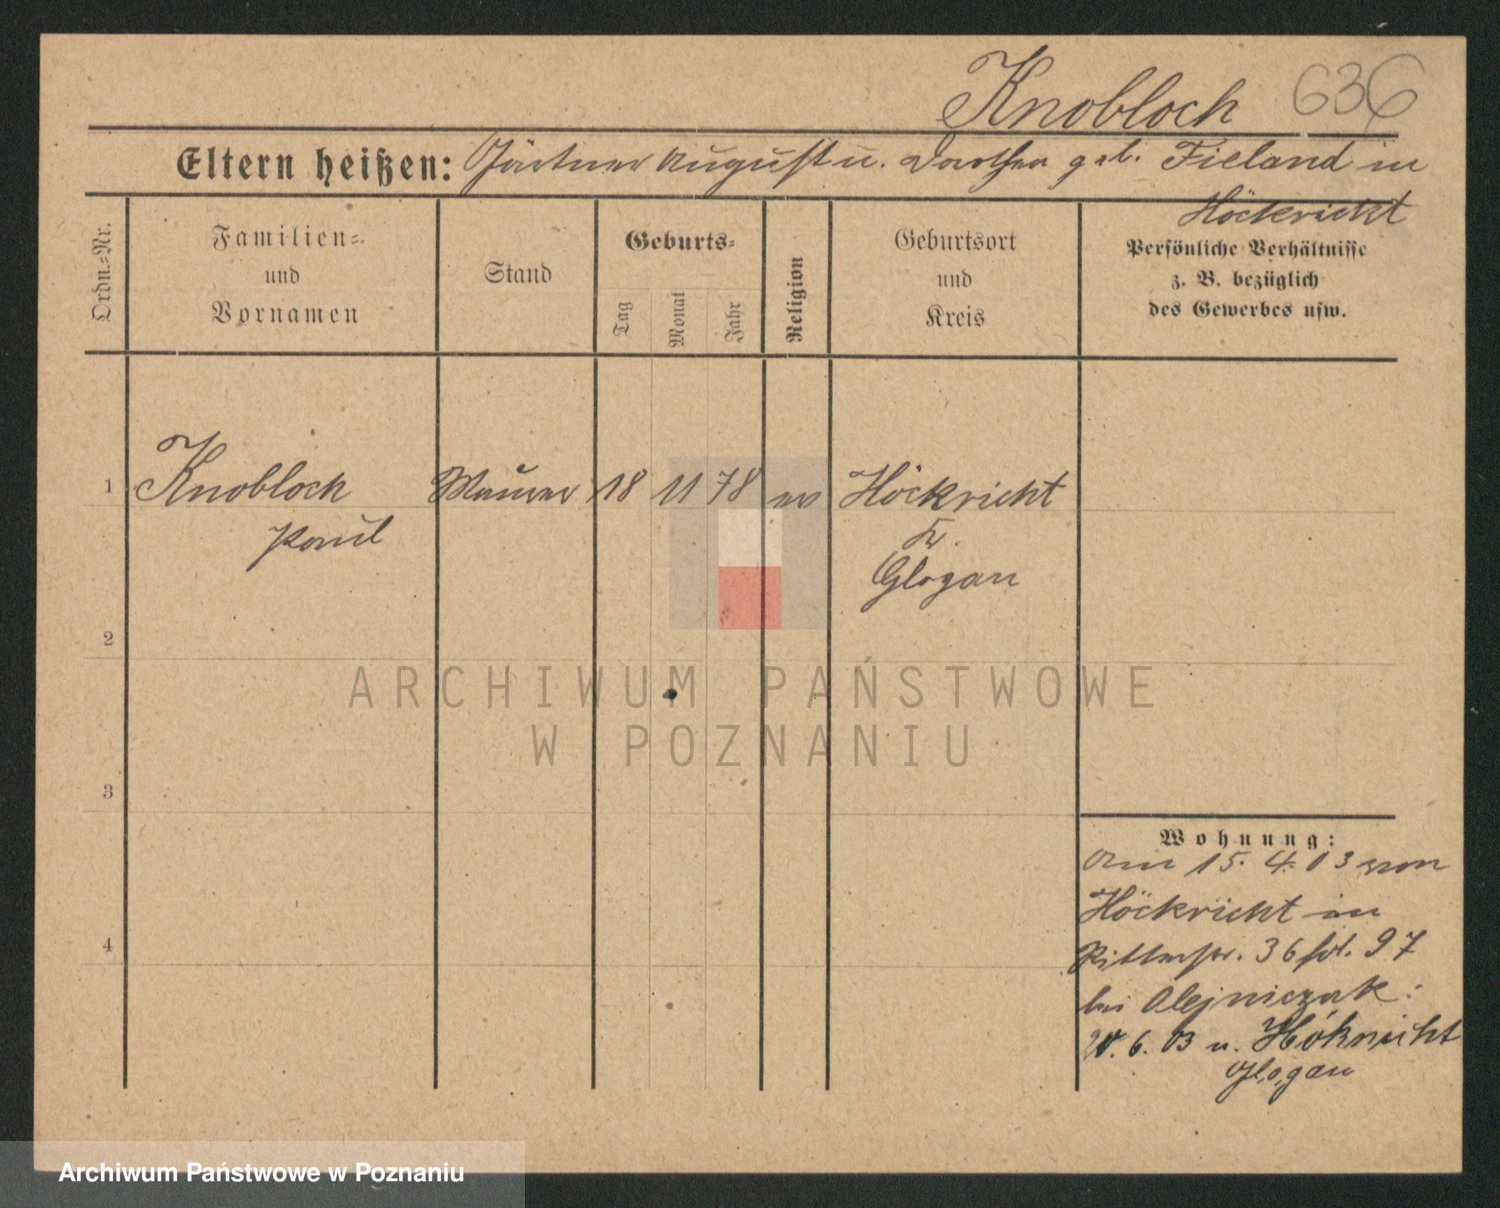 Knobloch 636
Eltern heißen: Gärtner August u. Dorothea geb. Fieland in
Höckricht
Ordn.-Nr.
Familien-
und
Vornamen
Stand
Geburts-
Tag
Monat
Jahr
Religion
Geburtsort
und
Kreis
Persönliche Verhältnisse
z. B. bezüglich
des Gewerbes usw.
1 Knobloch Maurer 18 11 78 ev Höckricht
Paul
Kr.
Glogau
2
3
4
Wohnung:
Am 15. 4. 03 von
Höckricht in
Ritterstr. 36 fol. 97
bei Olejniczak:
20. 6. 03 n. Hökricht
Glogau
ARCHIWUM PAŃSTWOWE
W POZNANIU
Archiwum Państwowe w Poznaniu